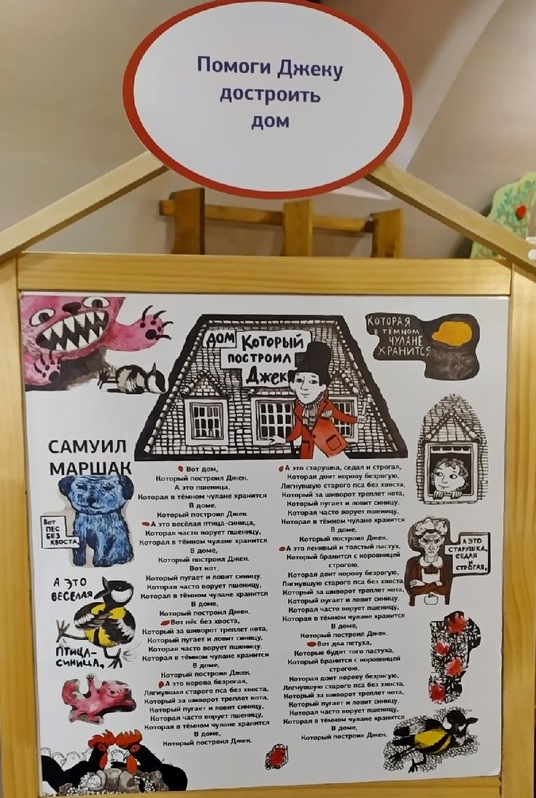 Помоги Джеку
достроить
дом
ДОМ КОТОРЫЙ
ПОСТРОИЛ
Джек
КОТОРАЯ
В ТЁМНОМ
ЧУЛАНЕ
ХРАНИТСЯ
САМУИЛ
МАРШАК
Вот дом,
Который построил Джек.
А это пшеница,
Которая в тёмном чулане хранится
В доме,
Который построил Джек.
А это весёлая птица-синица,
Которая часто ворует пшеницу,
Которая в тёмном чулане хранится
В доме,
Который построил Джек.
Вот кот,
Который пугает и ловит синицу,
Которая часто ворует пшеницу,
Которая в тёмном чулане хранится
В доме,
Который построил Джек.
Вот пёс без хвоста,
Который за шиворот треплет кота,
Который пугает и ловит синицу,
Которая часто ворует пшеницу,
Которая в тёмном чулане хранится
В доме,
Который построил Джек.
А это корова безрогая,
Лягнувшая старого пса без хвоста,
Который за шиворот треплет кота,
Который пугает и ловит синицу,
Которая часто ворует пшеницу,
Которая в тёмном чулане хранится
В доме,
Который построил Джек.
А это старушка, седая и строгая,
Которая доит корову безрогую,
Лягнувшую старого пса без хвоста,
Который за шиворот треплет кота,
Который пугает и ловит синицу,
Которая часто ворует пшеницу,
Которая в тёмном чулане хранится
В доме,
Который построил Джек.
А это ленивый и толстый пастух,
Который бранится с коровницей
строгою,
Которая доит корову безрогую,
Лягнувшую старого пса без хвоста,
Который за шиворот треплет кота,
Который пугает и ловит синицу,
Которая часто ворует пшеницу,
Которая в тёмном чулане хранится
В доме,
Который построил Джек.
Вот два петуха,
Которые будят того пастуха,
Который бранится с коровницей
строгою,
Которая доит корову безрогую,
Лягнувшую старого пса без хвоста,
Который за шиворот треплет кота,
Который пугает и ловит синицу,
Которая часто ворует пшеницу,
Которая в тёмном чулане хранится
В доме,
Который построил Джек.
ВОТ
ПЕС
БЕЗ
ХВОСТА,
А ЭТО
ВЕСЕЛАЯ
ПТИЦА-
СИНИЦА,
А ЭТО
СТАРУШКА,
СЕДАЯ
И
СТРОГАЯ,